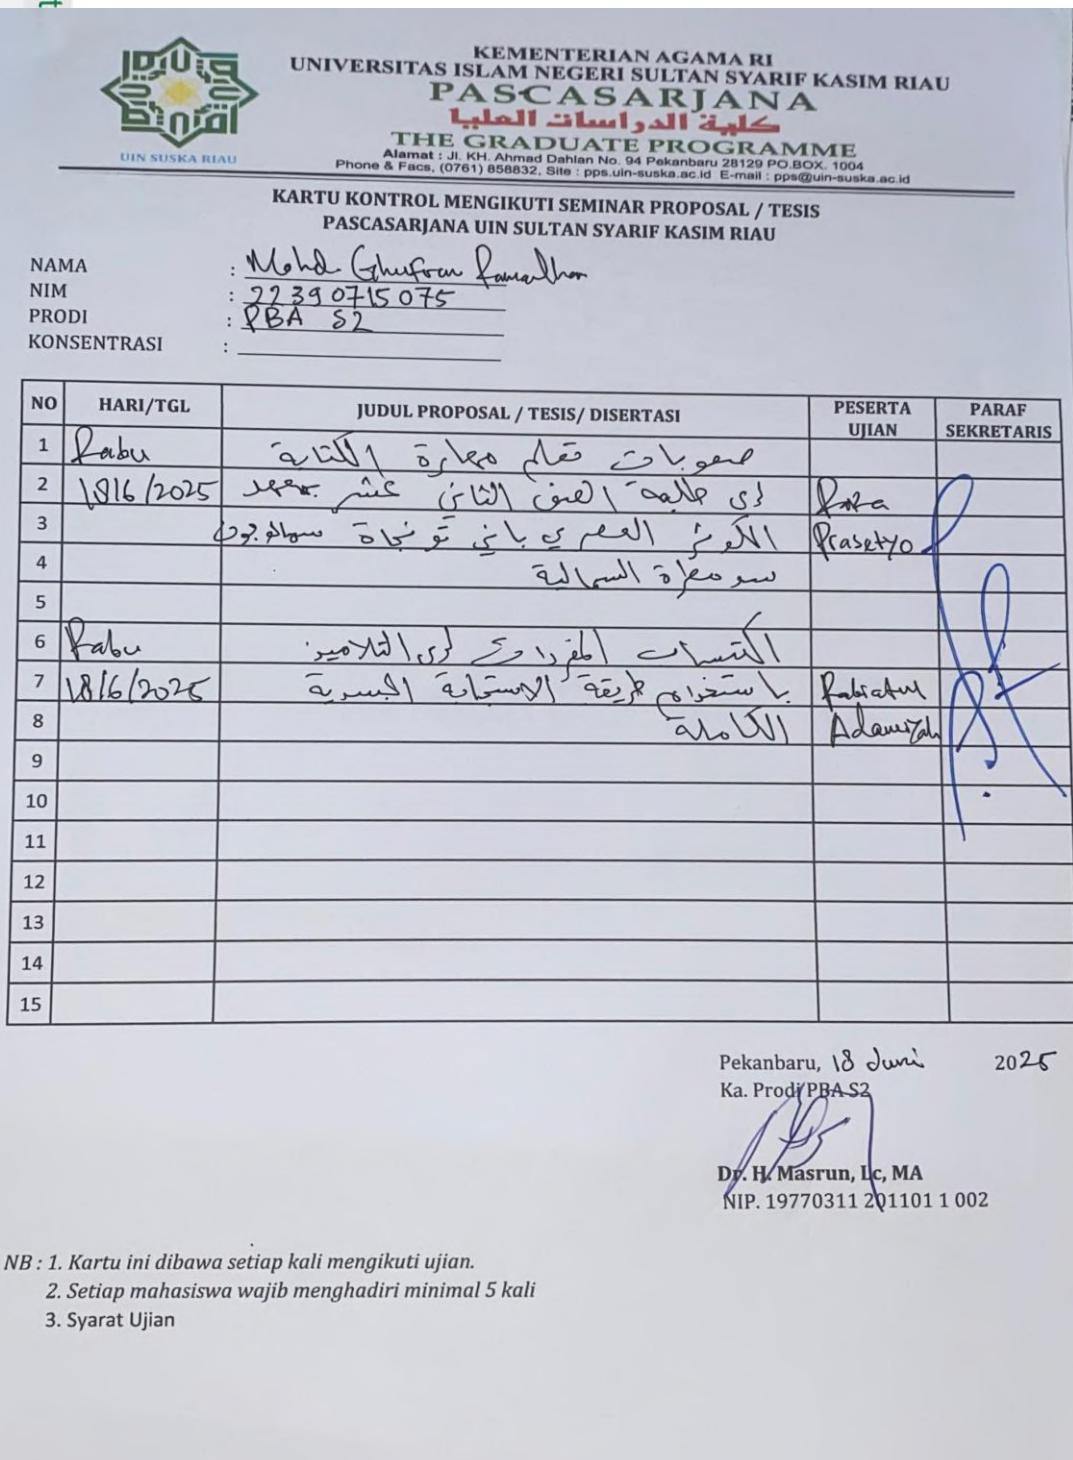 UIN SUSKA RIAU
KEMENTERIAN AGAMA RI
UNIVERSITAS ISLAM NEGERI SULTAN SYARIF KASIM RIAU
PASCASARJANA
كلية الدراسات العليا
THE GRADUATE PROGRAMME
Alamat : Jl. KH. Ahmad Dahlan No. 94 Pekanbaru 28129 PO.BOX. 1004
Phone & Facs, (0761) 858832, Site : pps.uin-suska.ac.id E-mail : pps@uin-suska.ac.id
KARTU KONTROL MENGIKUTI SEMINAR PROPOSAL / TESIS
PASCASARJANA UIN SULTAN SYARIF KASIM RIAU
NAMA : Mohd Ghufran Ramadhan
NIM : 22390715075
PRODI : PBA S2
KONSENTRASI :
NO HARI/TGL JUDUL PROPOSAL / TESIS/ DISERTASI PESERTA UJIAN PARAF SEKRETARIS
1 Rabu صعوبات تعلم مهارة الكتابة
2 18/6/2025 لدى طلبة الصف الثاني عشر بمعهد
3 الكوثر العصري باني تو نجاة Prasetyo
4 سومطرة الشمالية
5
6 Rabu اكتساب المفردات لدى التلاميذ
7 18/6/2025 باستخدام طريقة الاستجابة الجسدية Rabiatul
8 الكاملة Adawiyah
9
10
11
12
13
14
15
Pekanbaru, 18 Juni 2025
Ka. Prodi PBA S2
Dr. H. Masrun, Lc, MA
NIP. 19770311 201101 1 002
NB : 1. Kartu ini dibawa setiap kali mengikuti ujian.
2. Setiap mahasiswa wajib menghadiri minimal 5 kali
3. Syarat Ujian